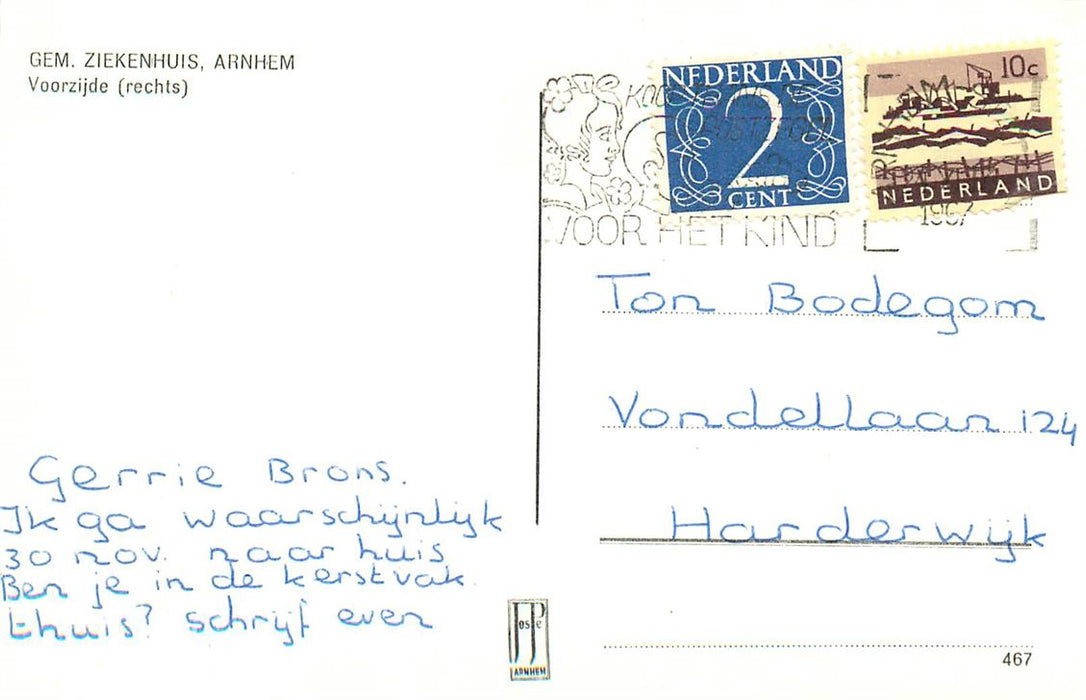 GEM. ZIEKENHUIS, ARNHEM
Voorzijde (rechts)
NEDERLAND
2
CENT
10c
NEDERLAND
VOOR HET KIND
1967
Ton Bodegom
Vondellaan 124
Harderwijk
Gerrie Brons.
Ik ga waarschijnlijk
30 nov. naar huis
Ben je in de kerstvak.
thuis? schrijf even
ARNHEM
467